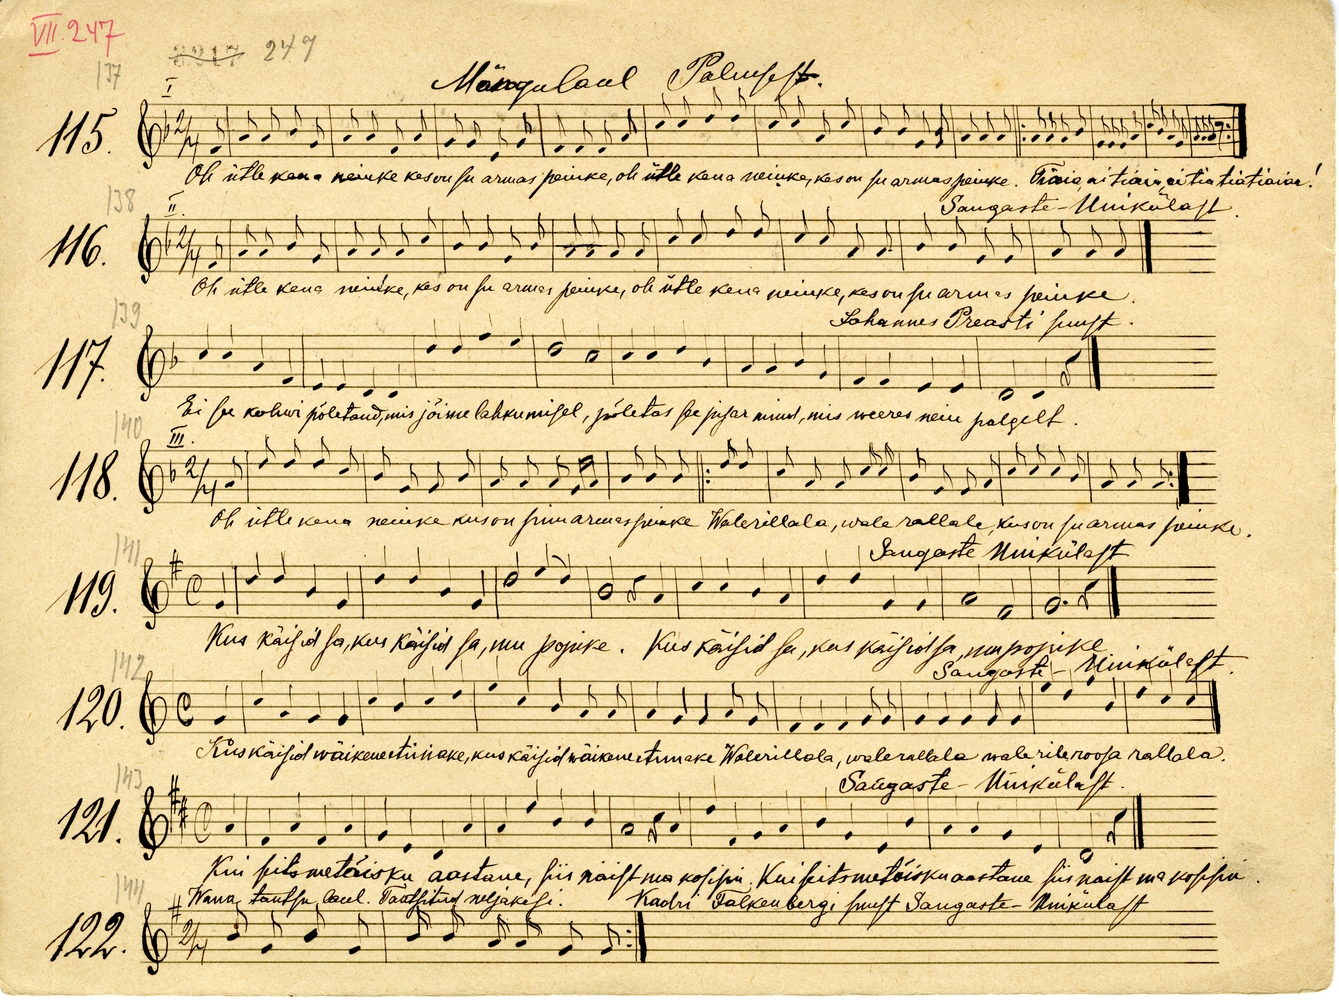 VII. 247
3217 247
137
Mängulaul Palupest.
I
115.
Oh ütle kena neiuke kes on su armas peiuke, oh ütle kena neiuke, kes on su armas peiuke.
138
Sangaste-Unikülast.
II
116.
Oh ütle kena neiuke, kes on su armas peiuke, oh ütle kena neiuke, kes on su armas peiuke.
139
Johannes Preasti suust.
117.
Ei see kohwi põletand, mis jõime lahkumisel, põletas see pisar mind, mis weeres neiu palgelt.
140
III.
118.
Oh ütle kena neiuke kes on sinu armas peiuke Walerillala, wale rallala, kes on su armas peiuke.
141
Sangaste Unikülast
119.
Kus käisid sa, kus käisid sa, mu poisike. Kus käisid sa, kus käisid sa, mu poisike
142
Sangaste- Unikülast.
120.
Kus käisid wäikene tiinake, kus käisid wäikene tiinake Walerillala, walerallala walerile roosa rallala.
143
Sangaste- Unikülast.
121.
Kui seitsmetõisku aastane, siis naist ma kosisin. Kui seitsmetõisku aastane siis naist ma kosisin.
144
Wana tantsu laul. Tantsitud neljakesi. Kadri Falkenbergi suust Sangaste- Unikülast
122.